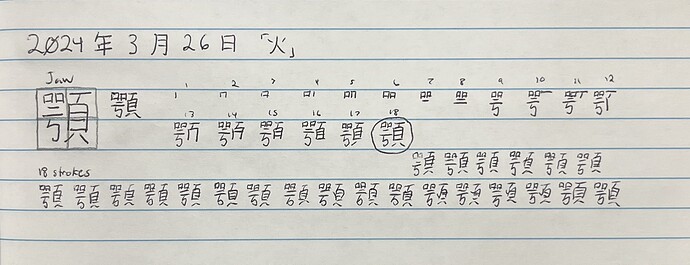 2024年3月26日「火」
Jaw 1 2 3 4 5 6 7 8 9 10 11 12
顎 顎
13 14 15 16 17 18
顎
顎 顎 顎 顎 顎 顎
18 strokes
顎 顎 顎 顎 顎 顎 顎 顎 顎 顎 顎 顎 顎 顎 顎 顎 顎